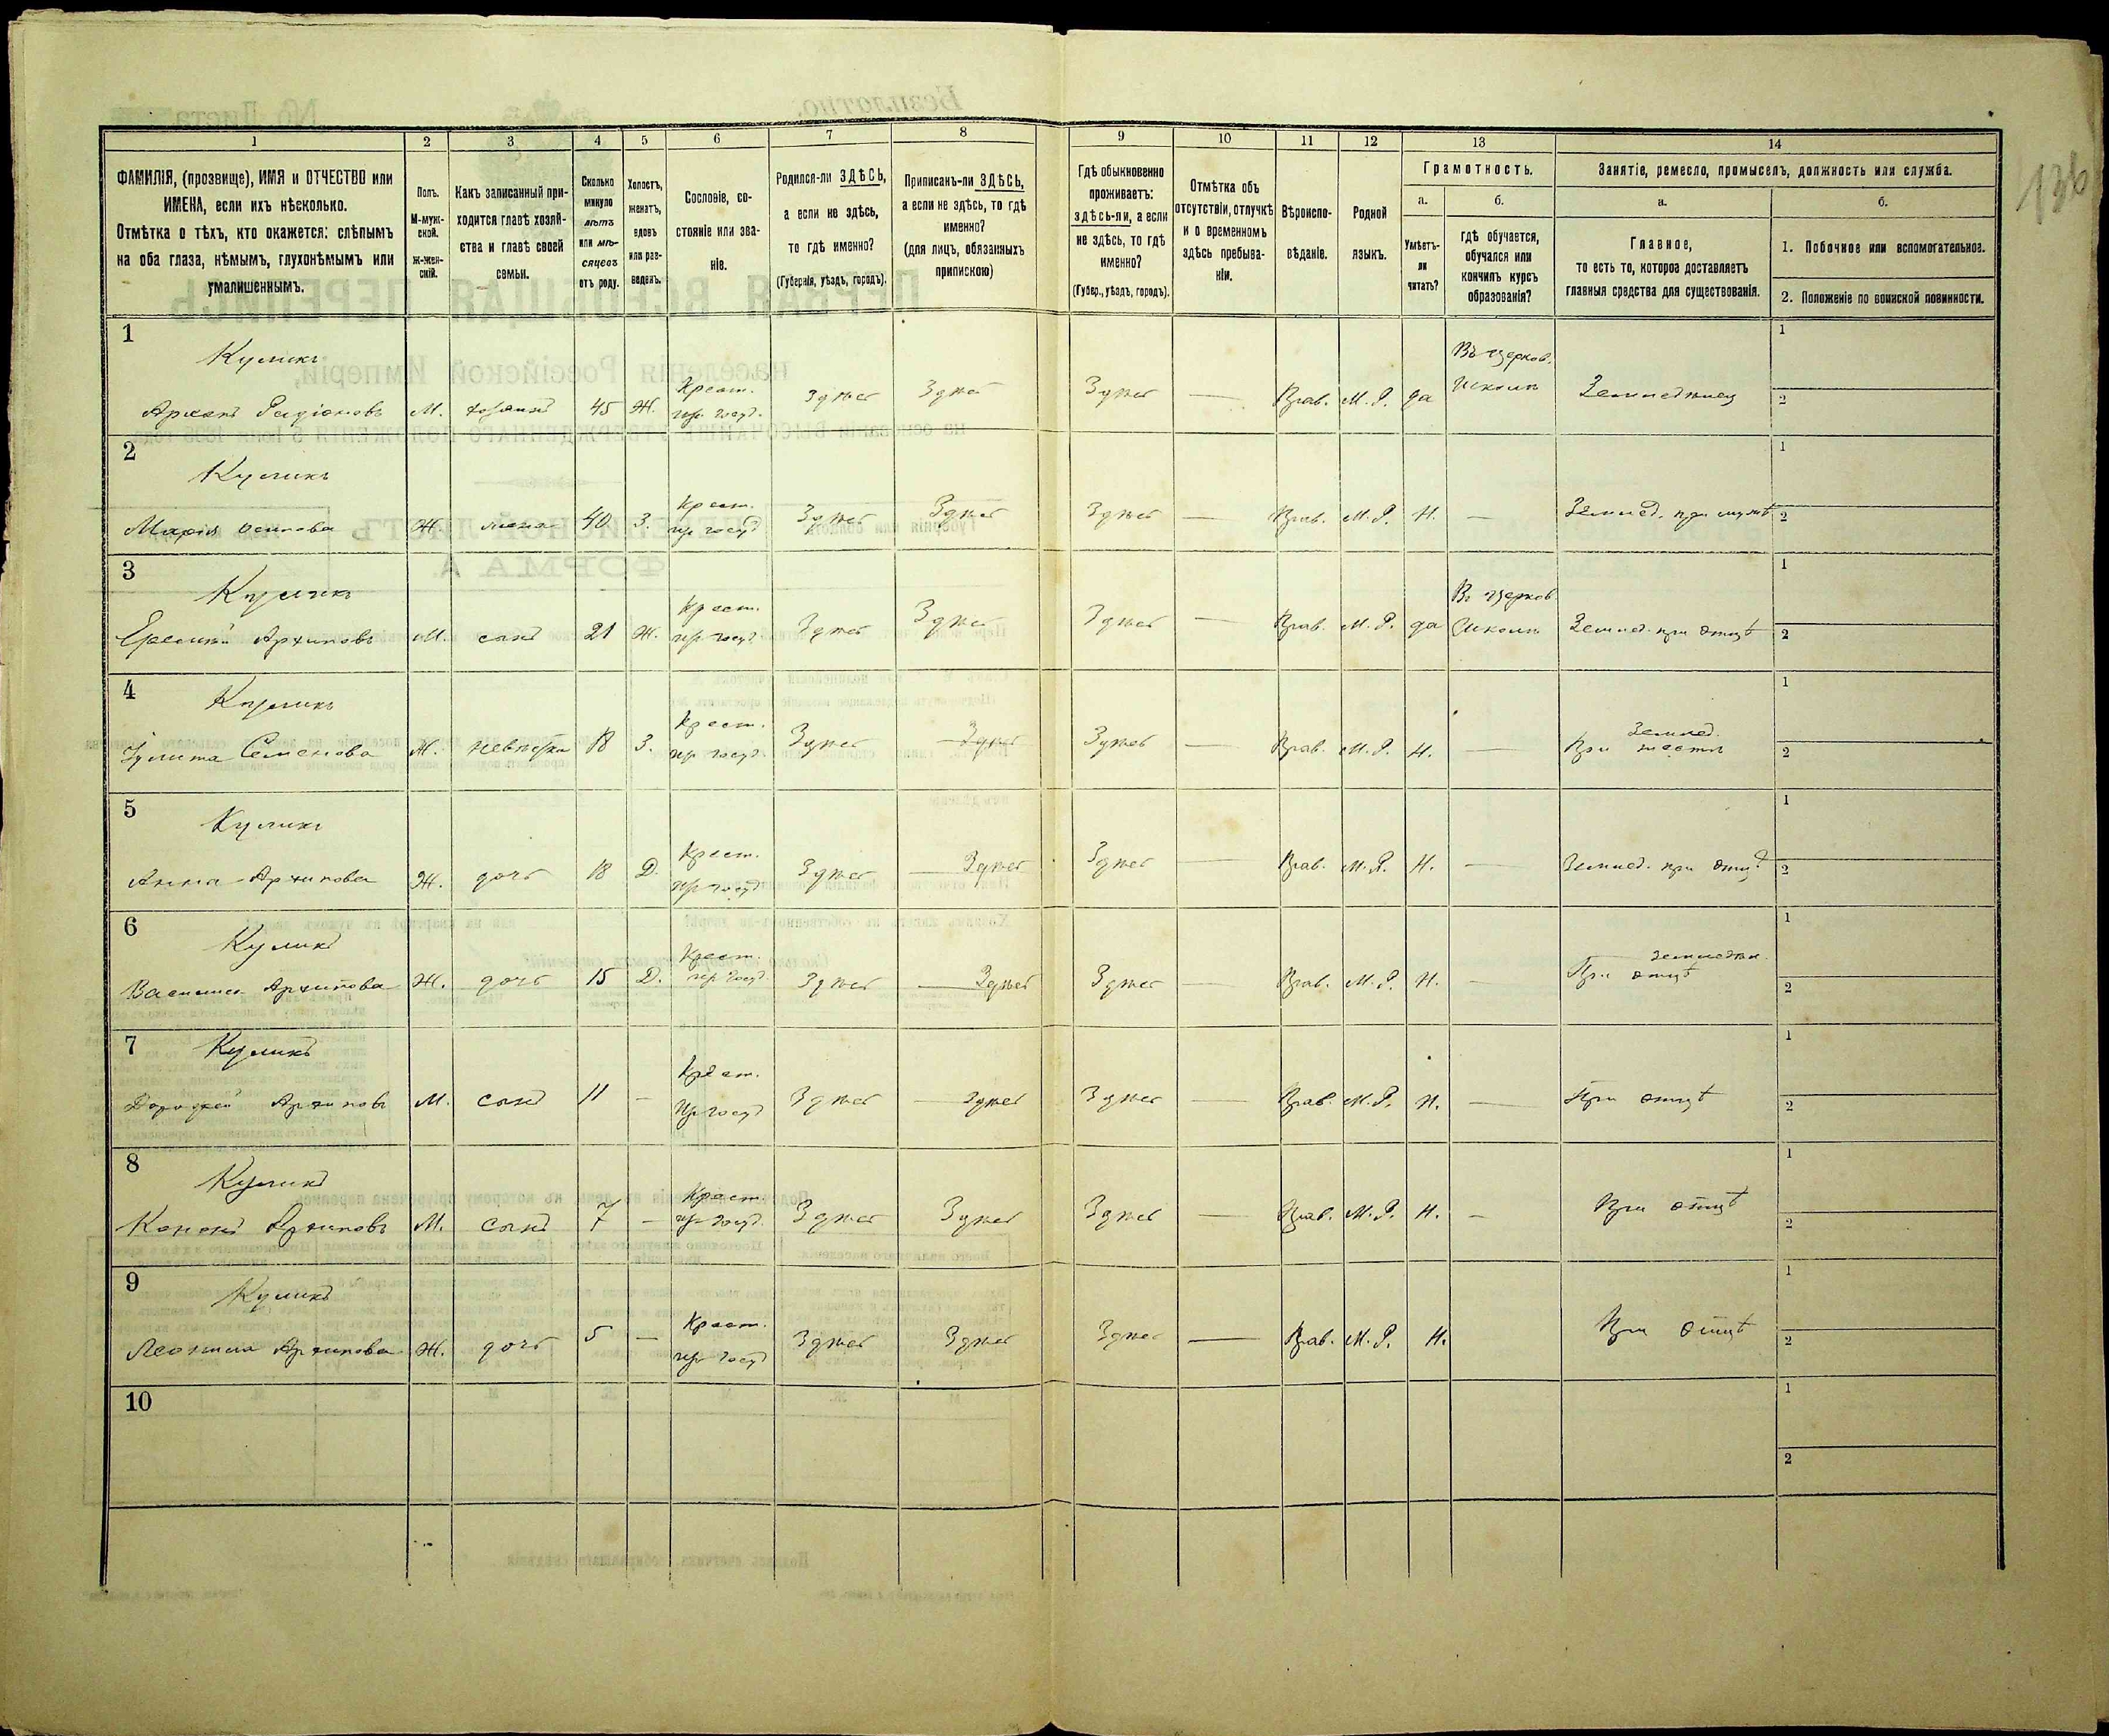 136
1 2 3 4 5 6 7 8 9 10 11 12 13 14
ФАМИЛІЯ, (прозвище), ИМЯ и ОТЧЕСТВО или
ИМЕНА, если ихъ нѣсколько.
Отмѣтка о тѣхъ, кто окажется: слѣпымъ
на оба глаза, нѣмымъ, глухонѣмымъ или
умалишеннымъ.
Полъ.
М-муж-
ской.
Ж-жен-
скій.
Какъ записанный при-
ходится главѣ хозяй-
ства и главѣ своей
семьи.
Сколько
минуло
лѣтъ
или мѣ-
сяцевъ
отъ роду.
Холостъ,
женатъ,
вдовъ
или раз-
веденъ.
Сословіе, со-
стояніе или зва-
ніе.
Родился-ли ЗДѢСЬ,
а если не здѣсь,
то гдѣ именно?
(Губернія, уѣздъ, городъ).
Приписанъ-ли ЗДѢСЬ,
а если не здѣсь, то гдѣ
именно?
(для лицъ, обязанныхъ
припискою)
Гдѣ обыкновенно
проживаетъ:
здѣсь-ли, а если
не здѣсь, то гдѣ
именно?
(Губер., уѣздъ, городъ).
Отмѣтка объ
отсутствіи, отлучкѣ
и о временномъ
здѣсь пребыва-
ніи.
Вѣроиспо-
вѣданіе.
Родной
языкъ.
Грамотность.
а.
Умѣетъ-
ли
читать?
б.
гдѣ обучается,
обучался или
кончилъ курсъ
образованія?
Занятіе, ремесло, промыселъ, должность или служба.
а.
Главное,
то есть то, которое доставляетъ
главныя средства для существованія.
б.
1. Побочное или вспомогательное.
2. Положеніе по воинской повинности.
1
Куликъ Крест. Въ церков. 1
Родіоновъ М. хозяинъ 45 Ж. изъ госуд. Здѣсь Здѣсь Здѣсь — Прав. М. Р. да школѣ Земледѣлец 2
2
Куликъ Крест. 1
Марія Осипова Ж. жена 40 З. изъ госуд Здѣсь Здѣсь Здѣсь — Прав. М. Р. Н. — Землед. при мужѣ 2
3
Куликъ Крест. Въ церков. 1
Архиповъ М. сынъ 21 Ж. изъ госуд. Здѣсь Здѣсь Здѣсь — Прав. М. Р. да Школѣ Землед. при отцѣ 2
4
Куликъ Крест. Землед. 1
Улита Семенова Ж. невѣстка 18 З. изъ госуд. Здѣсь Здѣсь Здѣсь — Прав. М. Р. Н. — При 2
5
Куликъ Крест. 1
Анна Архипова Ж. дочь 18 Д. изъ госуд Здѣсь Здѣсь Здѣсь — Прав. М. Р. Н. — Землед. при отцѣ 2
6
Куликъ Крест. 1
Василиса Архипова Ж. дочь 15 Д. изъ госуд. Здѣсь Здѣсь Здѣсь — Прав. М. Р. Н. — При отцѣ 2
7
Куликъ Крест. 1
Дорофей Архиповъ М. сынъ 11 — Изъ госуд Здѣсь Здѣсь Здѣсь — Прав. М. Р. Н. — При отцѣ 2
8
Куликъ Крест. 1
Кононъ Архиповъ М. сынъ 7 — изъ госуд. Здѣсь Здѣсь Здѣсь — Прав. М. Р. Н. — При отцѣ 2
9
Куликъ Крест. 1
Архипова Ж. дочь 5 — изъ госуд Здѣсь Здѣсь Здѣсь — Прав. М. Р. Н. При отцѣ 2
10
1
2